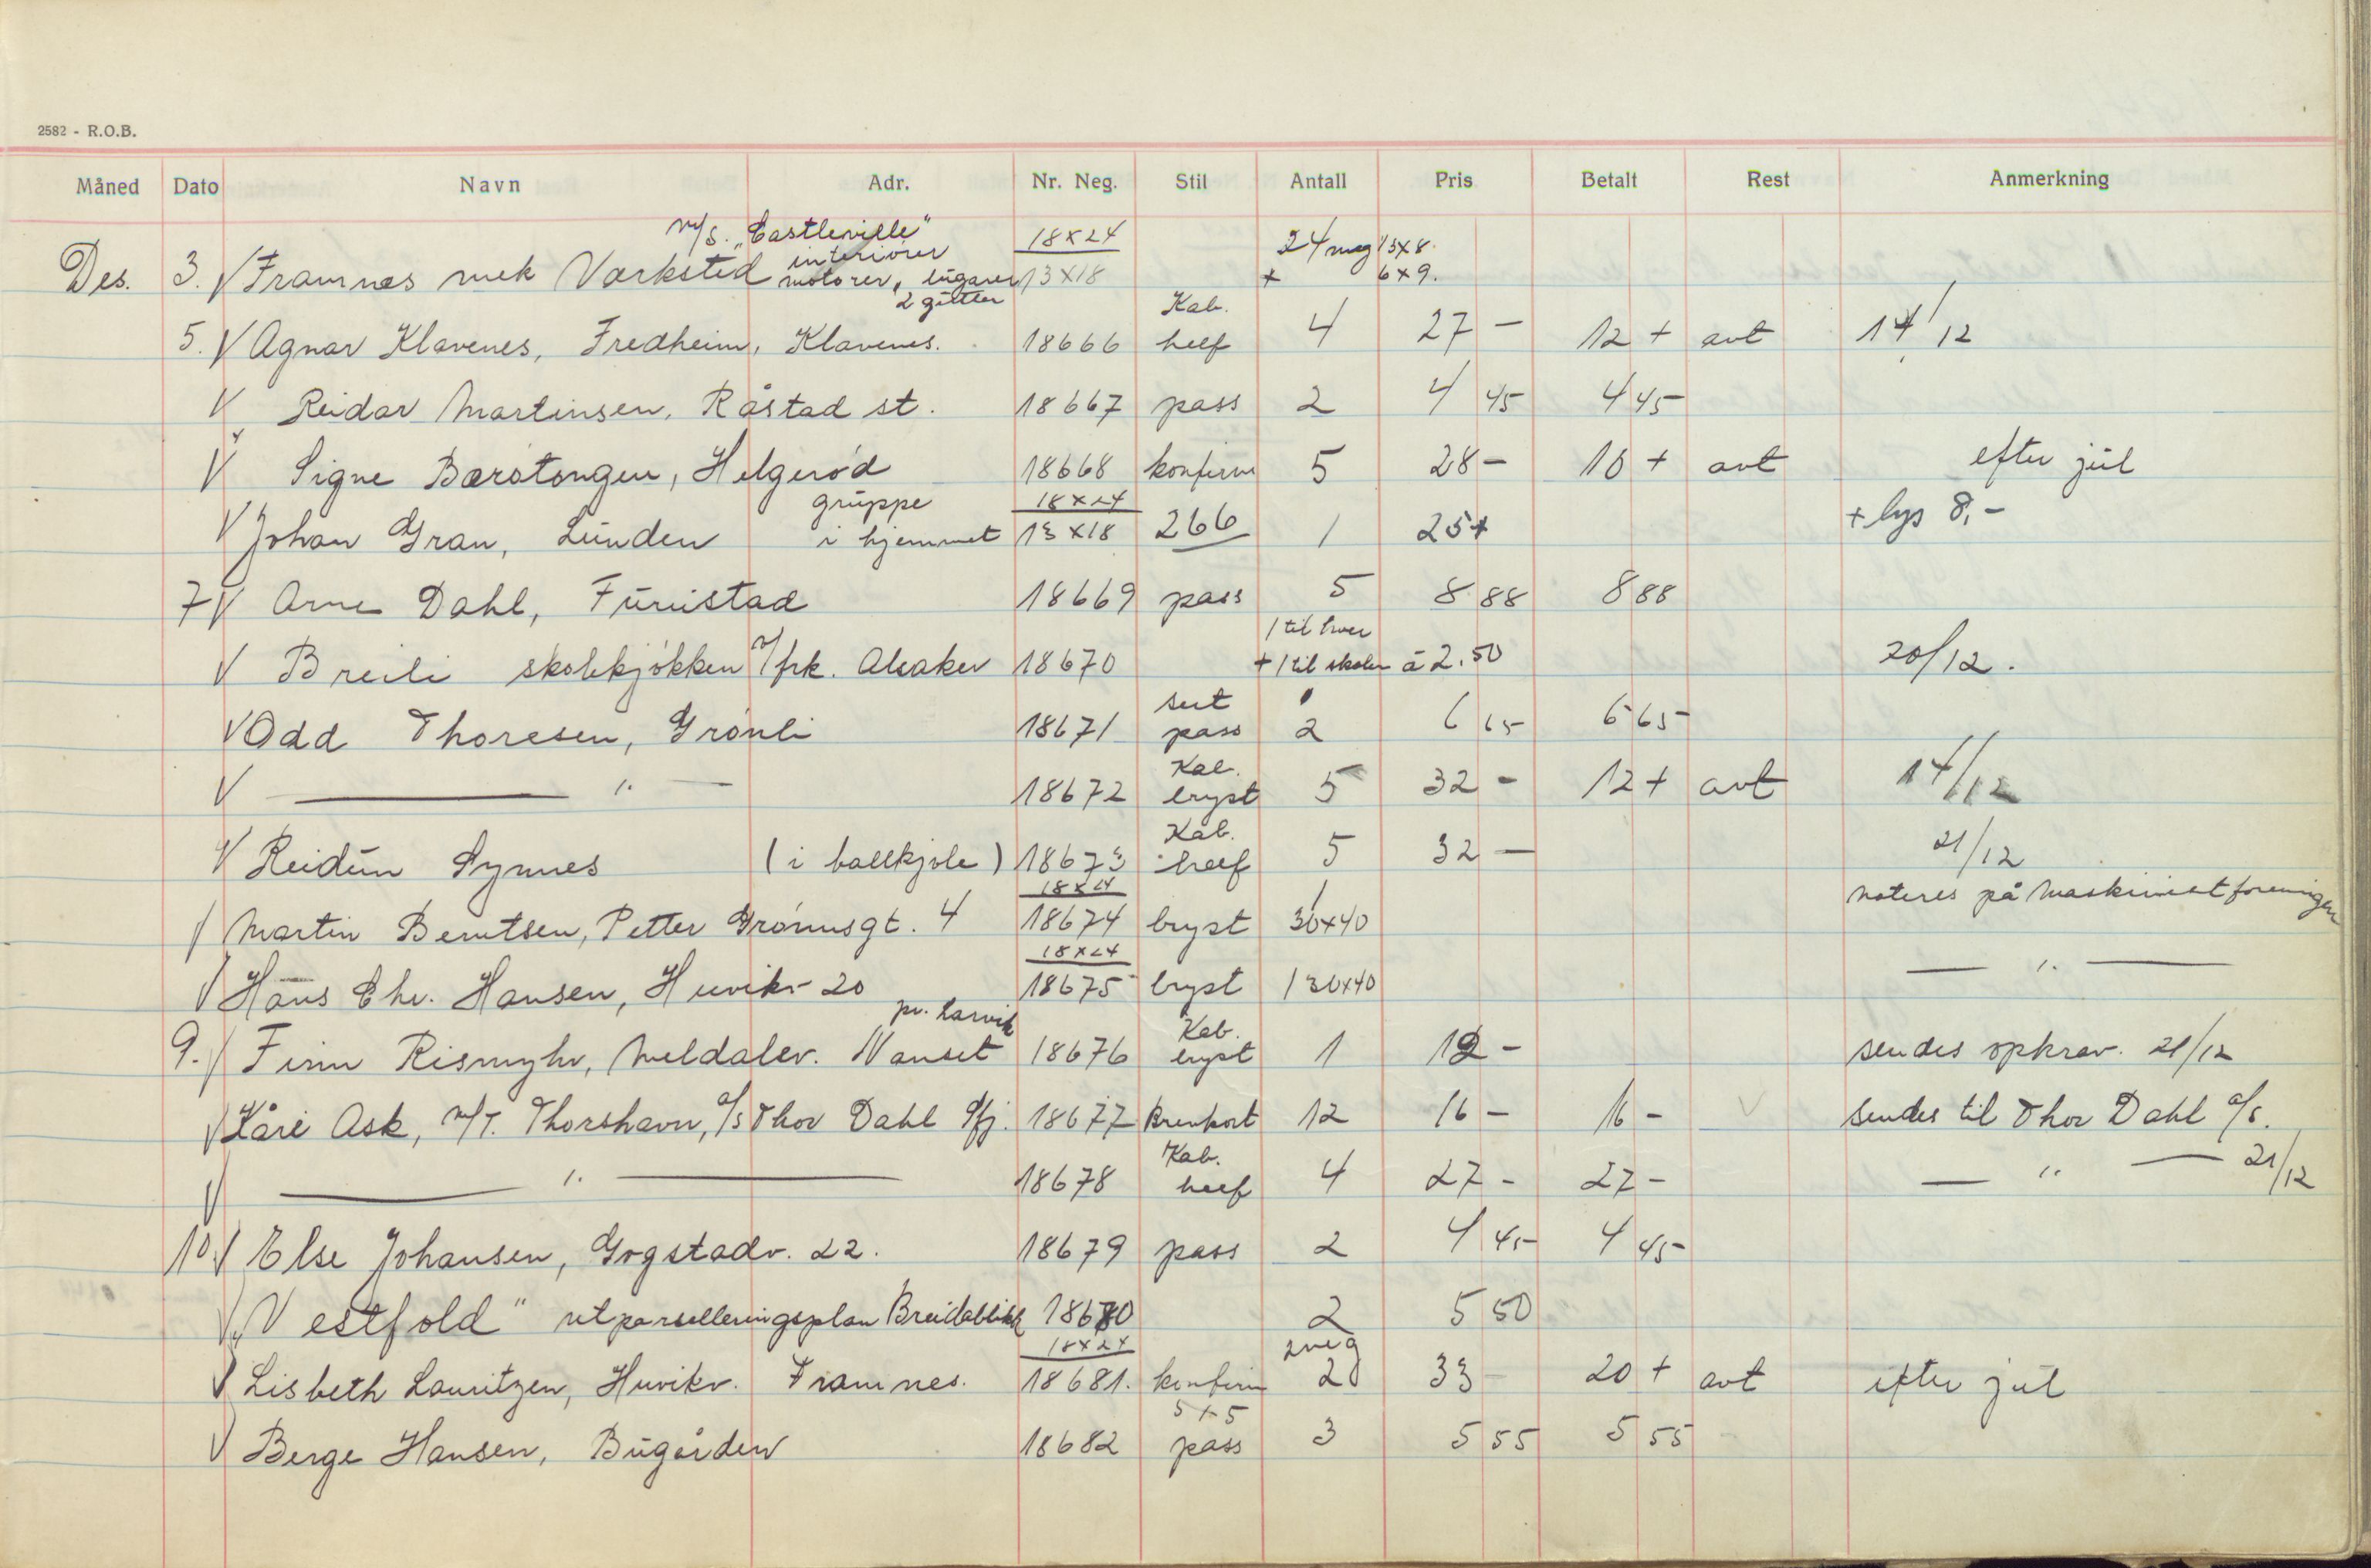 2582 - R.O.B.
Måned Dato Navn Adr. Nr. Neg. Stil Antall Pris Betalt Rest Anmerkning
m/s. „Castleville" 18x24 24 neg 13x18
interiører
Des. 3. V Framnæs mek Værksted motorer, lugarer 13x18 + 6x9.
2 gutter
Kab.
5. V Agnar Klavenes, Fredheim, Klavenes. 18666 helf 4 27 - 12 + avt 14/12
V Reidar Martinsen, Råstad st. 18667 pass 2 4 45 4 45
V Signe Barstongen, Helgerød 18668 konfirm 5 28 - 10 + avt efter jul
gruppe 18x24
V Johan Gran, Lunden i hjemmet 13x18 266 1 25+ + lys 8,-
7 V Arne Dahl, Furustad 18669 pass 5 8 88 8 88
1 til hver
V Breili skolekjøkken v/frk. Alsaker 18670 + 1 til skolen á 2.50 20/12.
sert
V Odd Thoresen, Grønli 18671 pass 2 6 65 6 65
Kab.
V — " — 18672 bryst 5 32 - 12 + avt 14/12
Kab.
V Reidun Synnes (i ballkjole) 18673 helf 5 32 — 21/12
18x24 1
V Martin Berntsen, Petter Grønnsgt. 4 18674 bryst 30x40 noteres på Maskinistforeningen
18x24
V Hans Chr. Hansen, Huvikv 20 18675 bryst 1 30x40 — " —
pr. Larvik Kab.
9. V Finn Rismyhr, Meldalsv. Nanset 18676 bryst 1 12 - sendes opkrav. 21/12
V Kåre Ask, M/T. Thorshavn, A/S Thor Dahl Sfj. 18677 Brevkort 12 16 - 16 - V sendes til Thor Dahl A/S.
Kab.
V — " — 18678 helf 4 27 - 27 - — " — 21/12
10 V Else Johansen, Gogstadv. 22. 18679 pass 2 4 45 4 45
V „Vestfold" utparselleringsplan Breidablikk 18680 2 5 50
18x24 2 neg
V Lisbeth Lauritzen, Huvikv. Framnes. 18681. konfirm 20 33 - 20 + avt efter jul
5+5
V Berge Hansen, Bugården 18682 pass 3 5 55 5 55